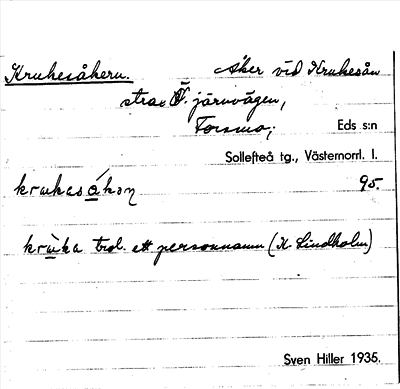 Krukesåkern. Åker vid Krukesån
strax Ö. järnvägen,
Forsmo; Eds s:n
Sollefteå tg., Västernorrl. l.
krukesåkəɳ 95.
krùka trol. ett personnamn (K. Lindholm)
Sven Hiller 1935.